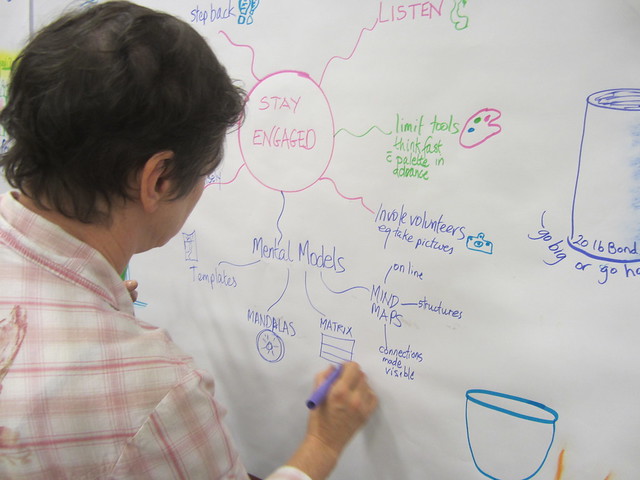 step back
LISTEN
STAY
ENGAGED
limit tools
think fast
palette in
advance
Involve volunteers
eg take pictures
Mental Models
Templates
MANDALAS
MATRIX
MIND
MAPS
on line
structures
connections
made
visible
20 lb Bond
go big or go